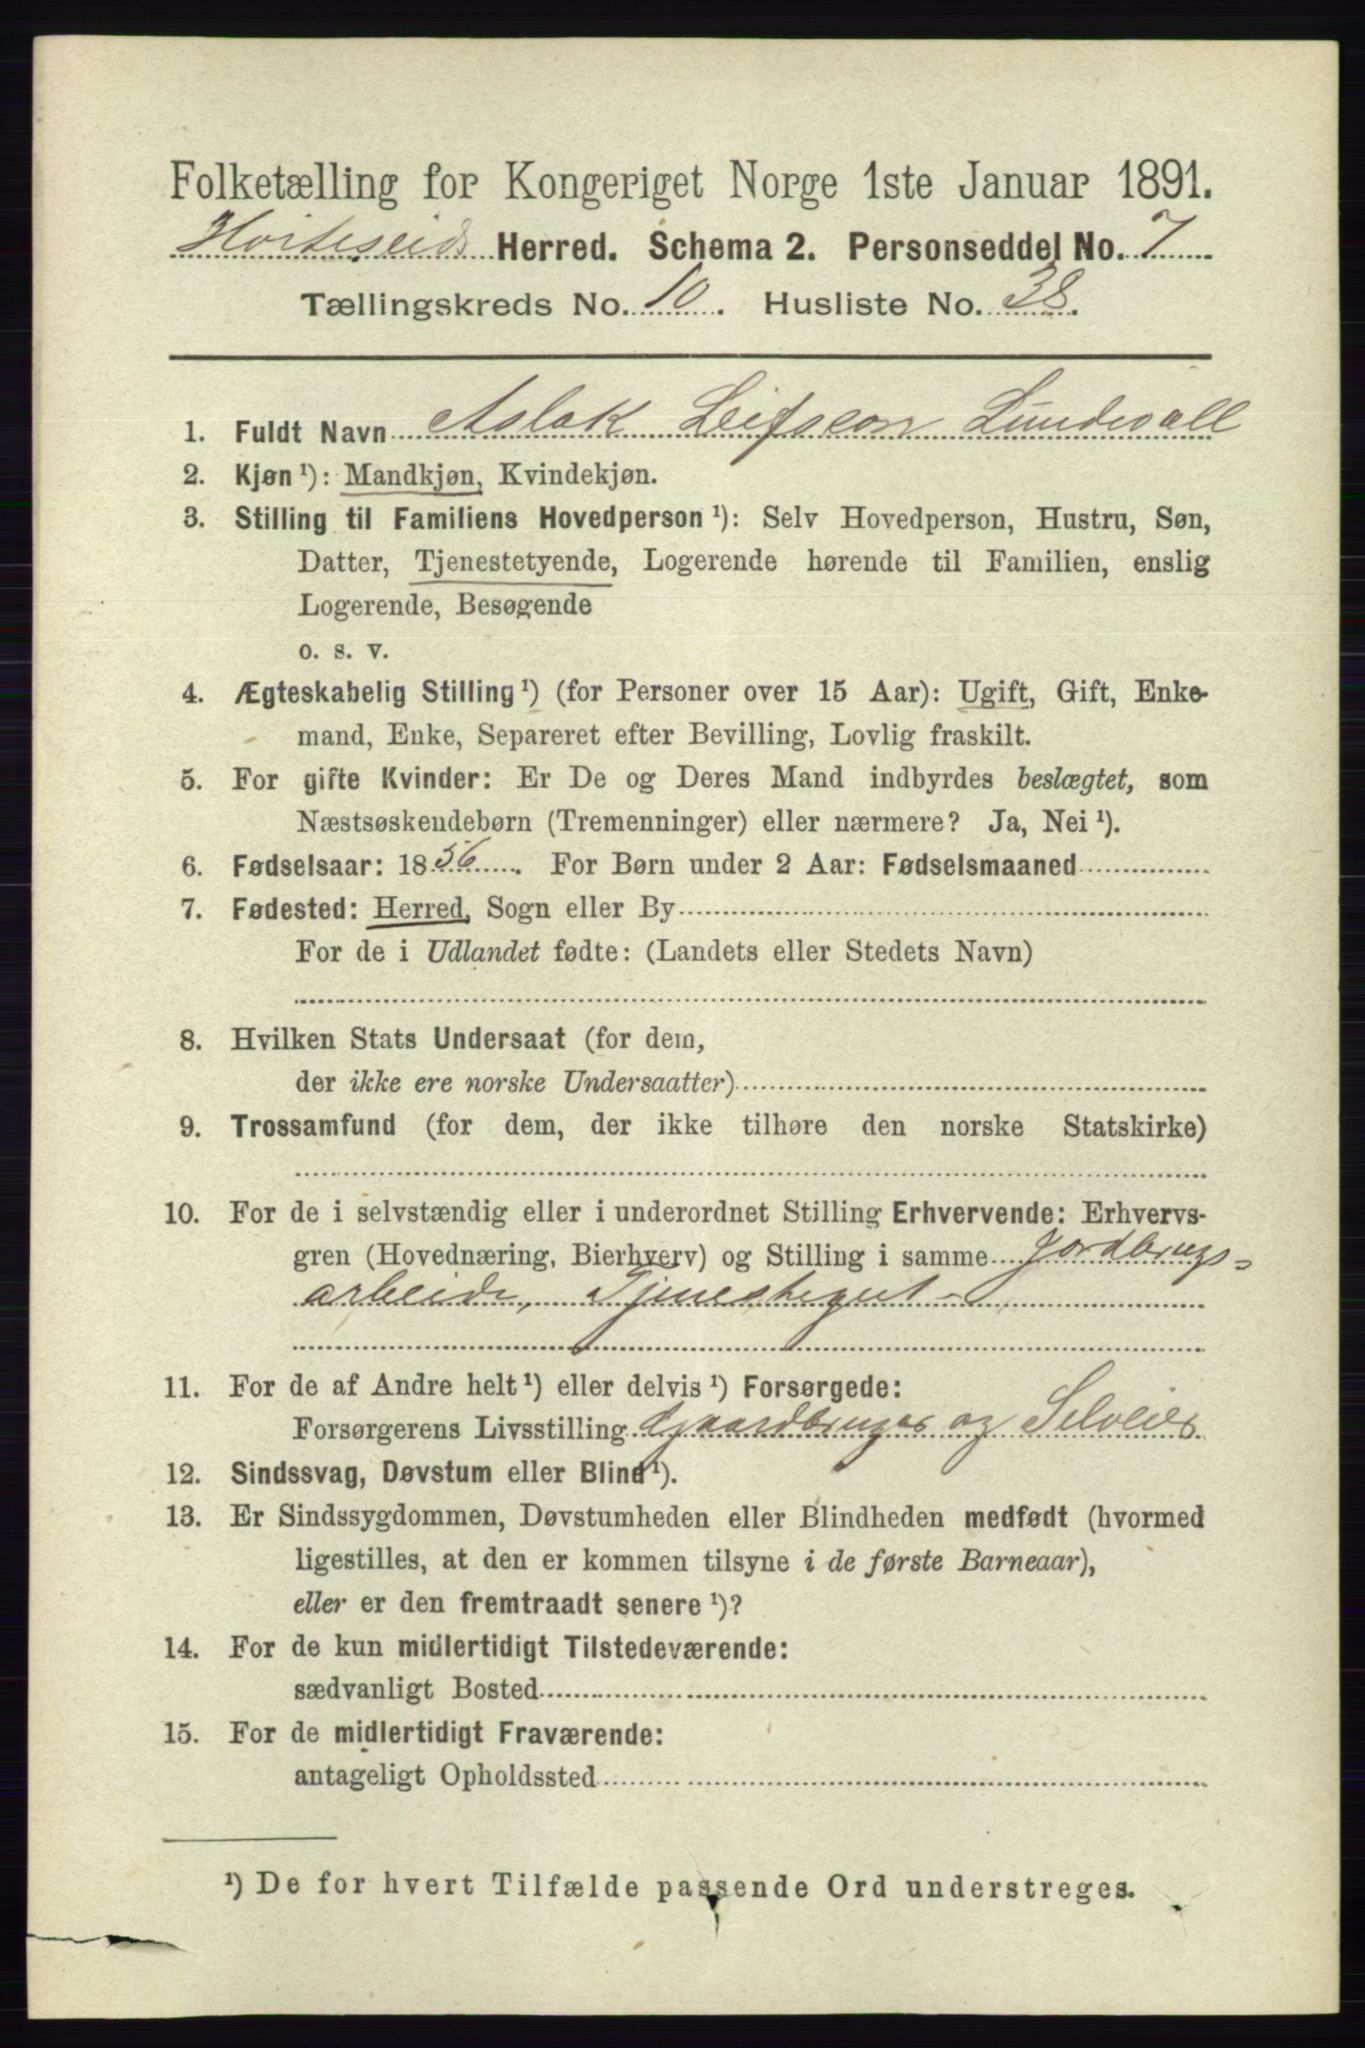 Folketælling for Kongeriget Norge 1ste Januar 1891.
Hviteseid Herred. Schema 2. Personseddel No. 7
Tællingskreds No. 10. Husliste No. 38.
1. Fuldt Navn Aslak Leifsson Lundevall
2. Kjøn ¹): Mandkjøn, Kvindekjøn.
3. Stilling til Familiens Hovedperson ¹): Selv Hovedperson, Hustru, Søn,
Datter, Tjenestetyende, Logerende hørende til Familien, enslig
Logerende, Besøgende
o. s. v.
4. Ægteskabelig Stilling ¹) (for Personer over 15 Aar): Ugift, Gift, Enke-
mand, Enke, Separeret efter Bevilling, Lovlig fraskilt.
5. For gifte Kvinder: Er De og Deres Mand indbyrdes beslægtet, som
Næstsøskendebørn (Tremenninger) eller nærmere? Ja, Nei ¹).
6. Fødselsaar: 1856. For Børn under 2 Aar: Fødselsmaaned
7. Fødested: Herred, Sogn eller By
For de i Udlandet fødte: (Landets eller Stedets Navn)
8. Hvilken Stats Undersaat (for dem,
der ikke ere norske Undersaatter)
9. Trossamfund (for dem, der ikke tilhøre den norske Statskirke)
10. For de i selvstændig eller i underordnet Stilling Erhvervende: Erhvervs-
gren (Hovednæring, Bierhverv) og Stilling i samme Jordbrugs-
arbeide, Tjenestegut
11. For de af Andre helt ¹) eller delvis ¹) Forsørgede:
Forsørgerens Livsstilling Gaardbruger og Selveier
12. Sindssvag, Døvstum eller Blind ¹).
13. Er Sindssygdommen, Døvstumheden eller Blindheden medfødt (hvormed
ligestilles, at den er kommen tilsyne i de første Barneaar),
eller er den fremtraadt senere ¹)?
14. For de kun midlertidigt Tilstedeværende:
sædvanligt Bosted
15. For de midlertidigt Fraværende:
antageligt Opholdssted
¹) De for hvert Tilfælde passende Ord understreges.